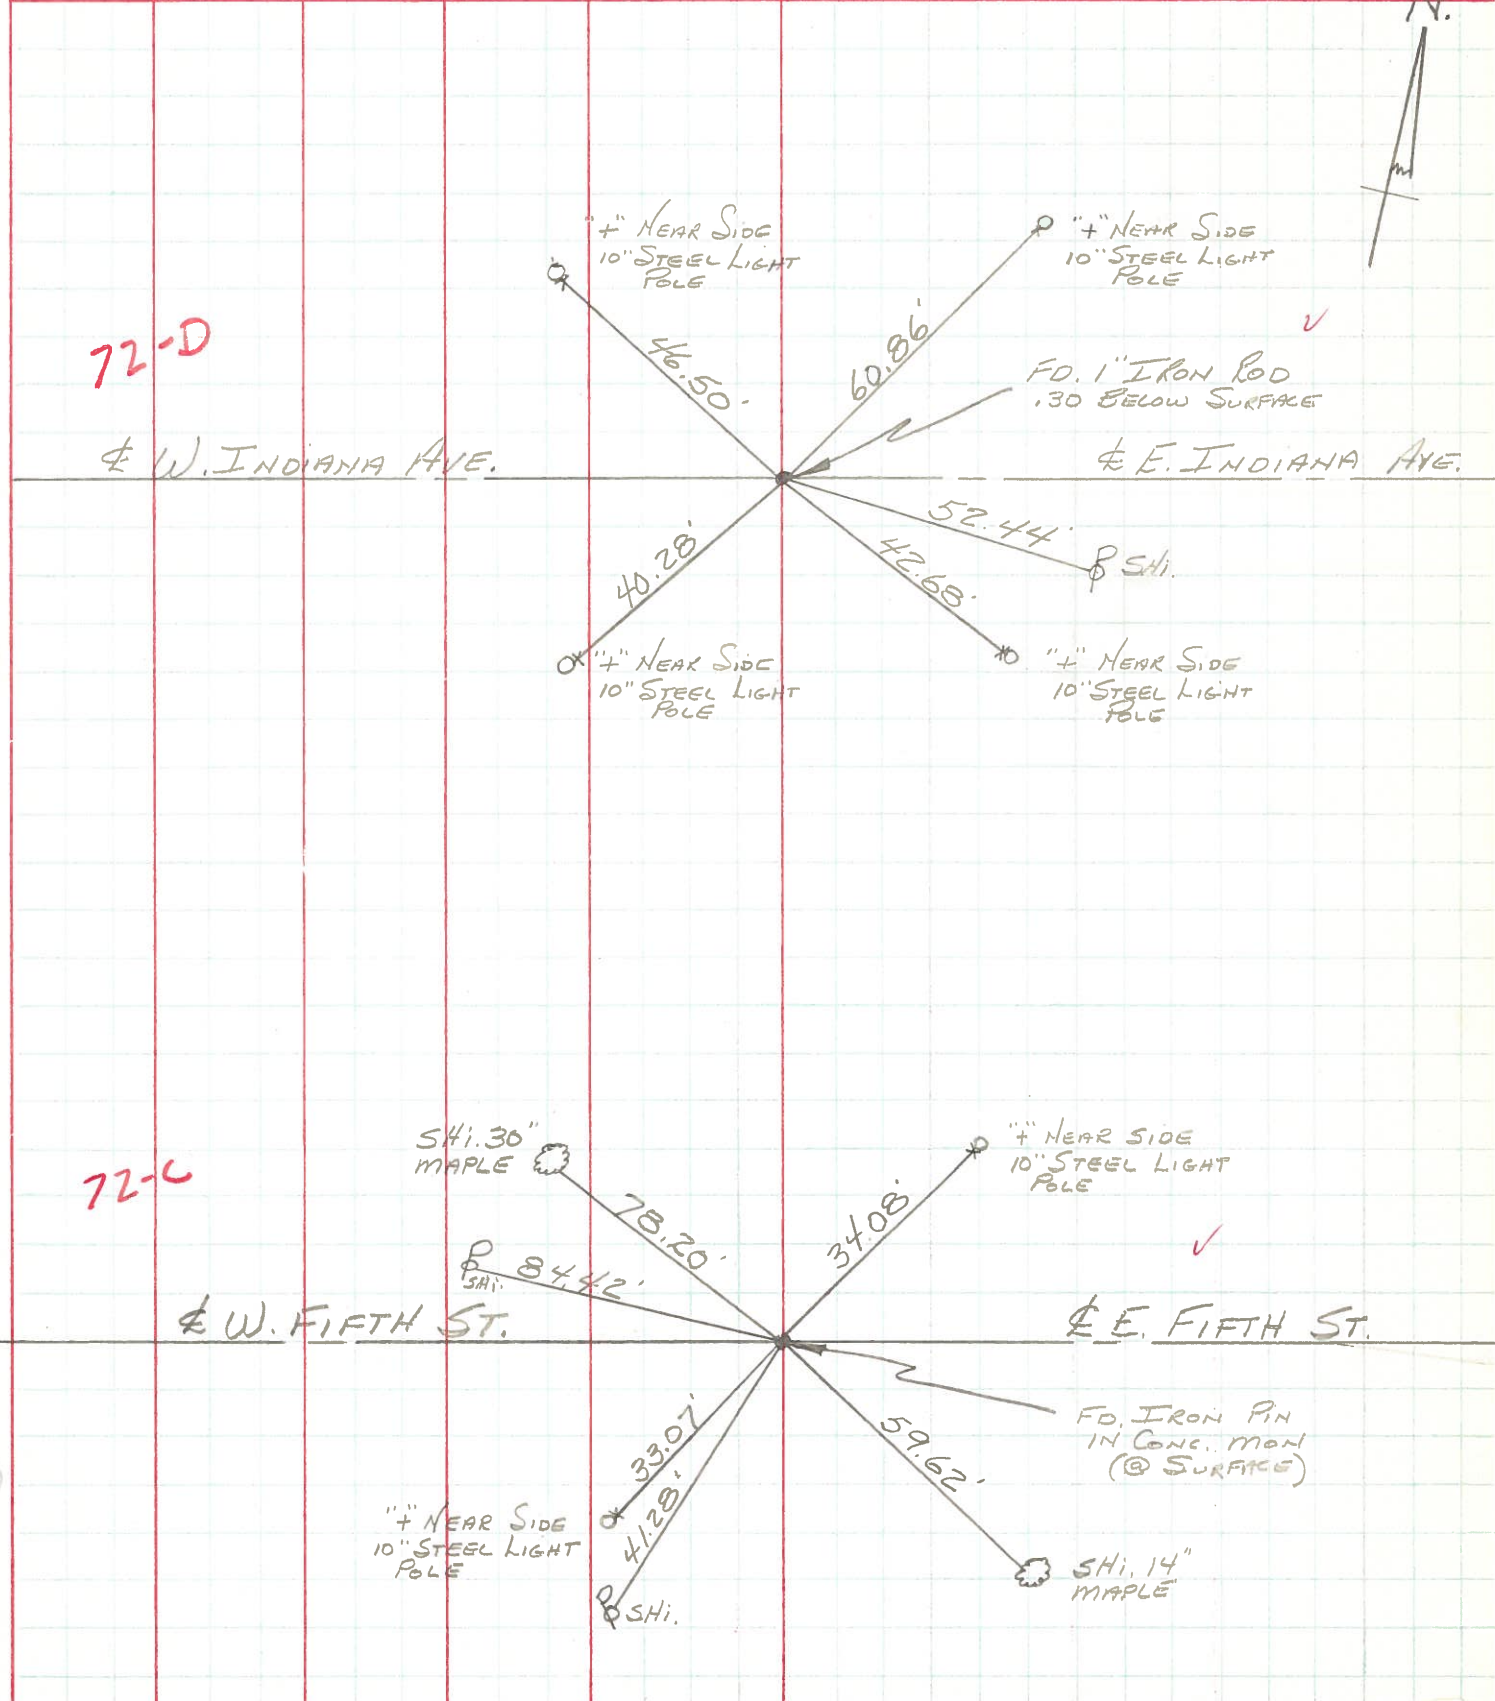 N.
"+" NEAR SIDE
10" STEEL LIGHT
POLE
"+" NEAR SIDE
10" STEEL LIGHT
POLE
72-D
46.50'
60.86'
FD. 1" IRON ROD
.30 BELOW SURFACE
℄ W. INDIANA AVE.
℄ E. INDIANA AVE.
52.44'
40.28'
42.68'
SHi.
"+" NEAR SIDE
10" STEEL LIGHT
POLE
"+" NEAR SIDE
10" STEEL LIGHT
POLE
SHi. 30"
MAPLE
"+" NEAR SIDE
10" STEEL LIGHT
POLE
72-C
78.20'
34.08'
84.42'
SHi.
℄ W. FIFTH ST.
℄ E. FIFTH ST.
FD. IRON PIN
IN CONC. MON
(@ SURFACE)
33.07'
59.62'
41.28'
"+" NEAR SIDE
10" STEEL LIGHT
POLE
SHi. 14"
MAPLE
SHi.